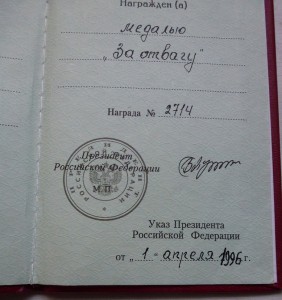 Награжден (а)
медалью
„За отвагу"
Награда № 2714
Президент
Российской Федерации
М.П.
Указ Президента
Российской Федерации
от „ 1 - апреля 1996 г.